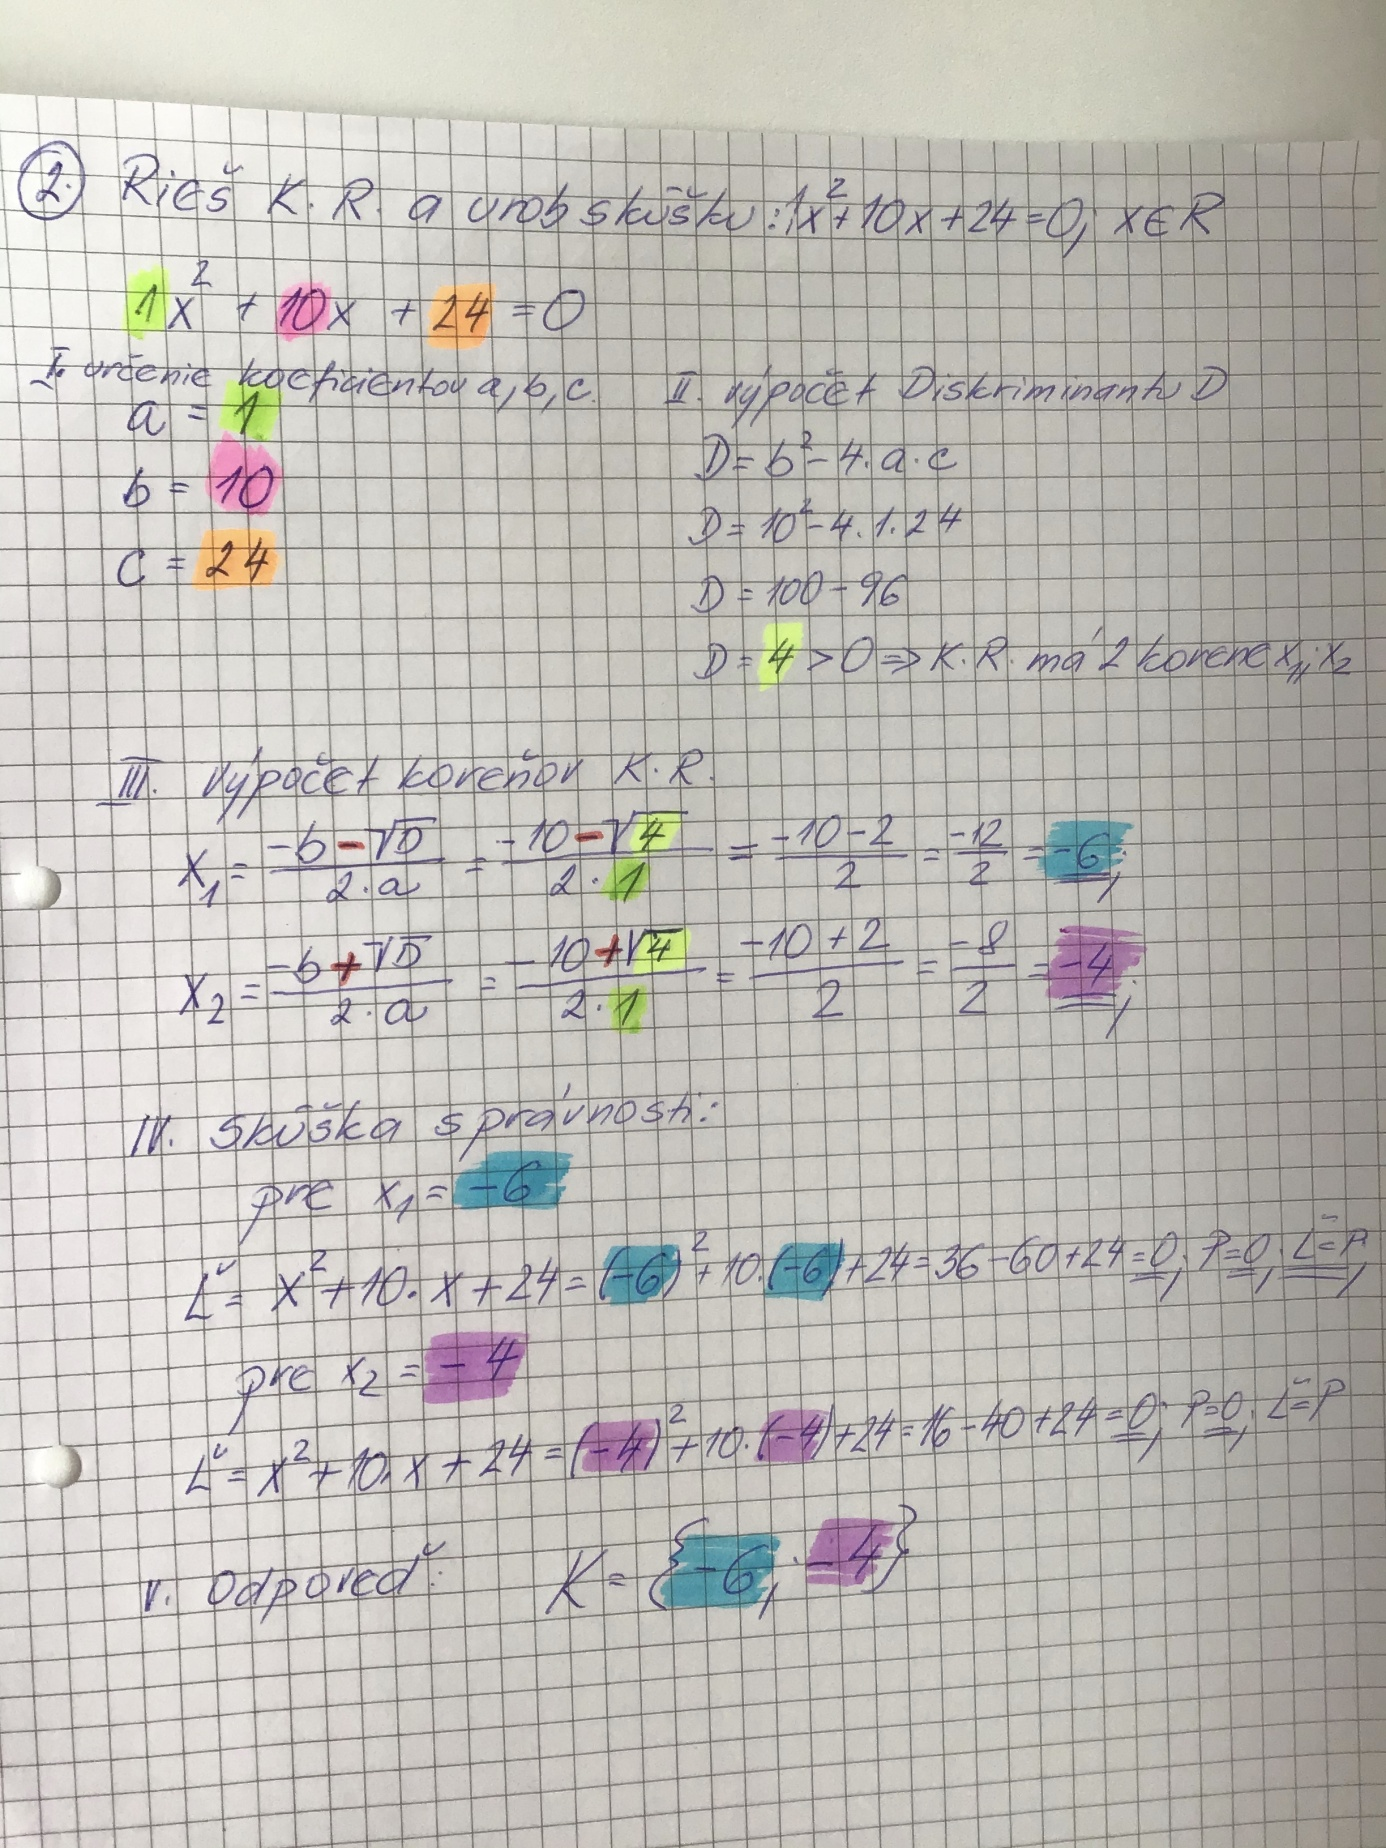 2. Rieš K.R. a urob skúšku: 1x²+10x+24=0; x∈R
1x² + 10x + 24 = 0
I. určenie koeficientov a, b, c.
a = 1
b = 10
c = 24
II. výpočet Diskriminantu D
D = b² - 4·a·c
D = 10² - 4·1·24
D = 100 - 96
D = 4 > 0 => K.R. má 2 korene x₁; x₂
III. výpočet koreňov K.R.
x₁ = (-b-√D)/(2·a) = (-10-√4)/(2·1) = (-10-2)/2 = -12/2 = -6;
x₂ = (-b+√D)/(2·a) = (-10+√4)/(2·1) = (-10+2)/2 = -8/2 = -4;
IV. Skúška správnosti:
pre x₁ = -6
Ľ = x²+10·x+24 = (-6)²+10·(-6)+24 = 36-60+24 = 0; P=0; Ľ=P;
pre x₂ = -4
Ľ = x²+10·x+24 = (-4)²+10·(-4)+24 = 16-40+24 = 0; P=0; Ľ=P
V. Odpoveď: K = {-6; -4}